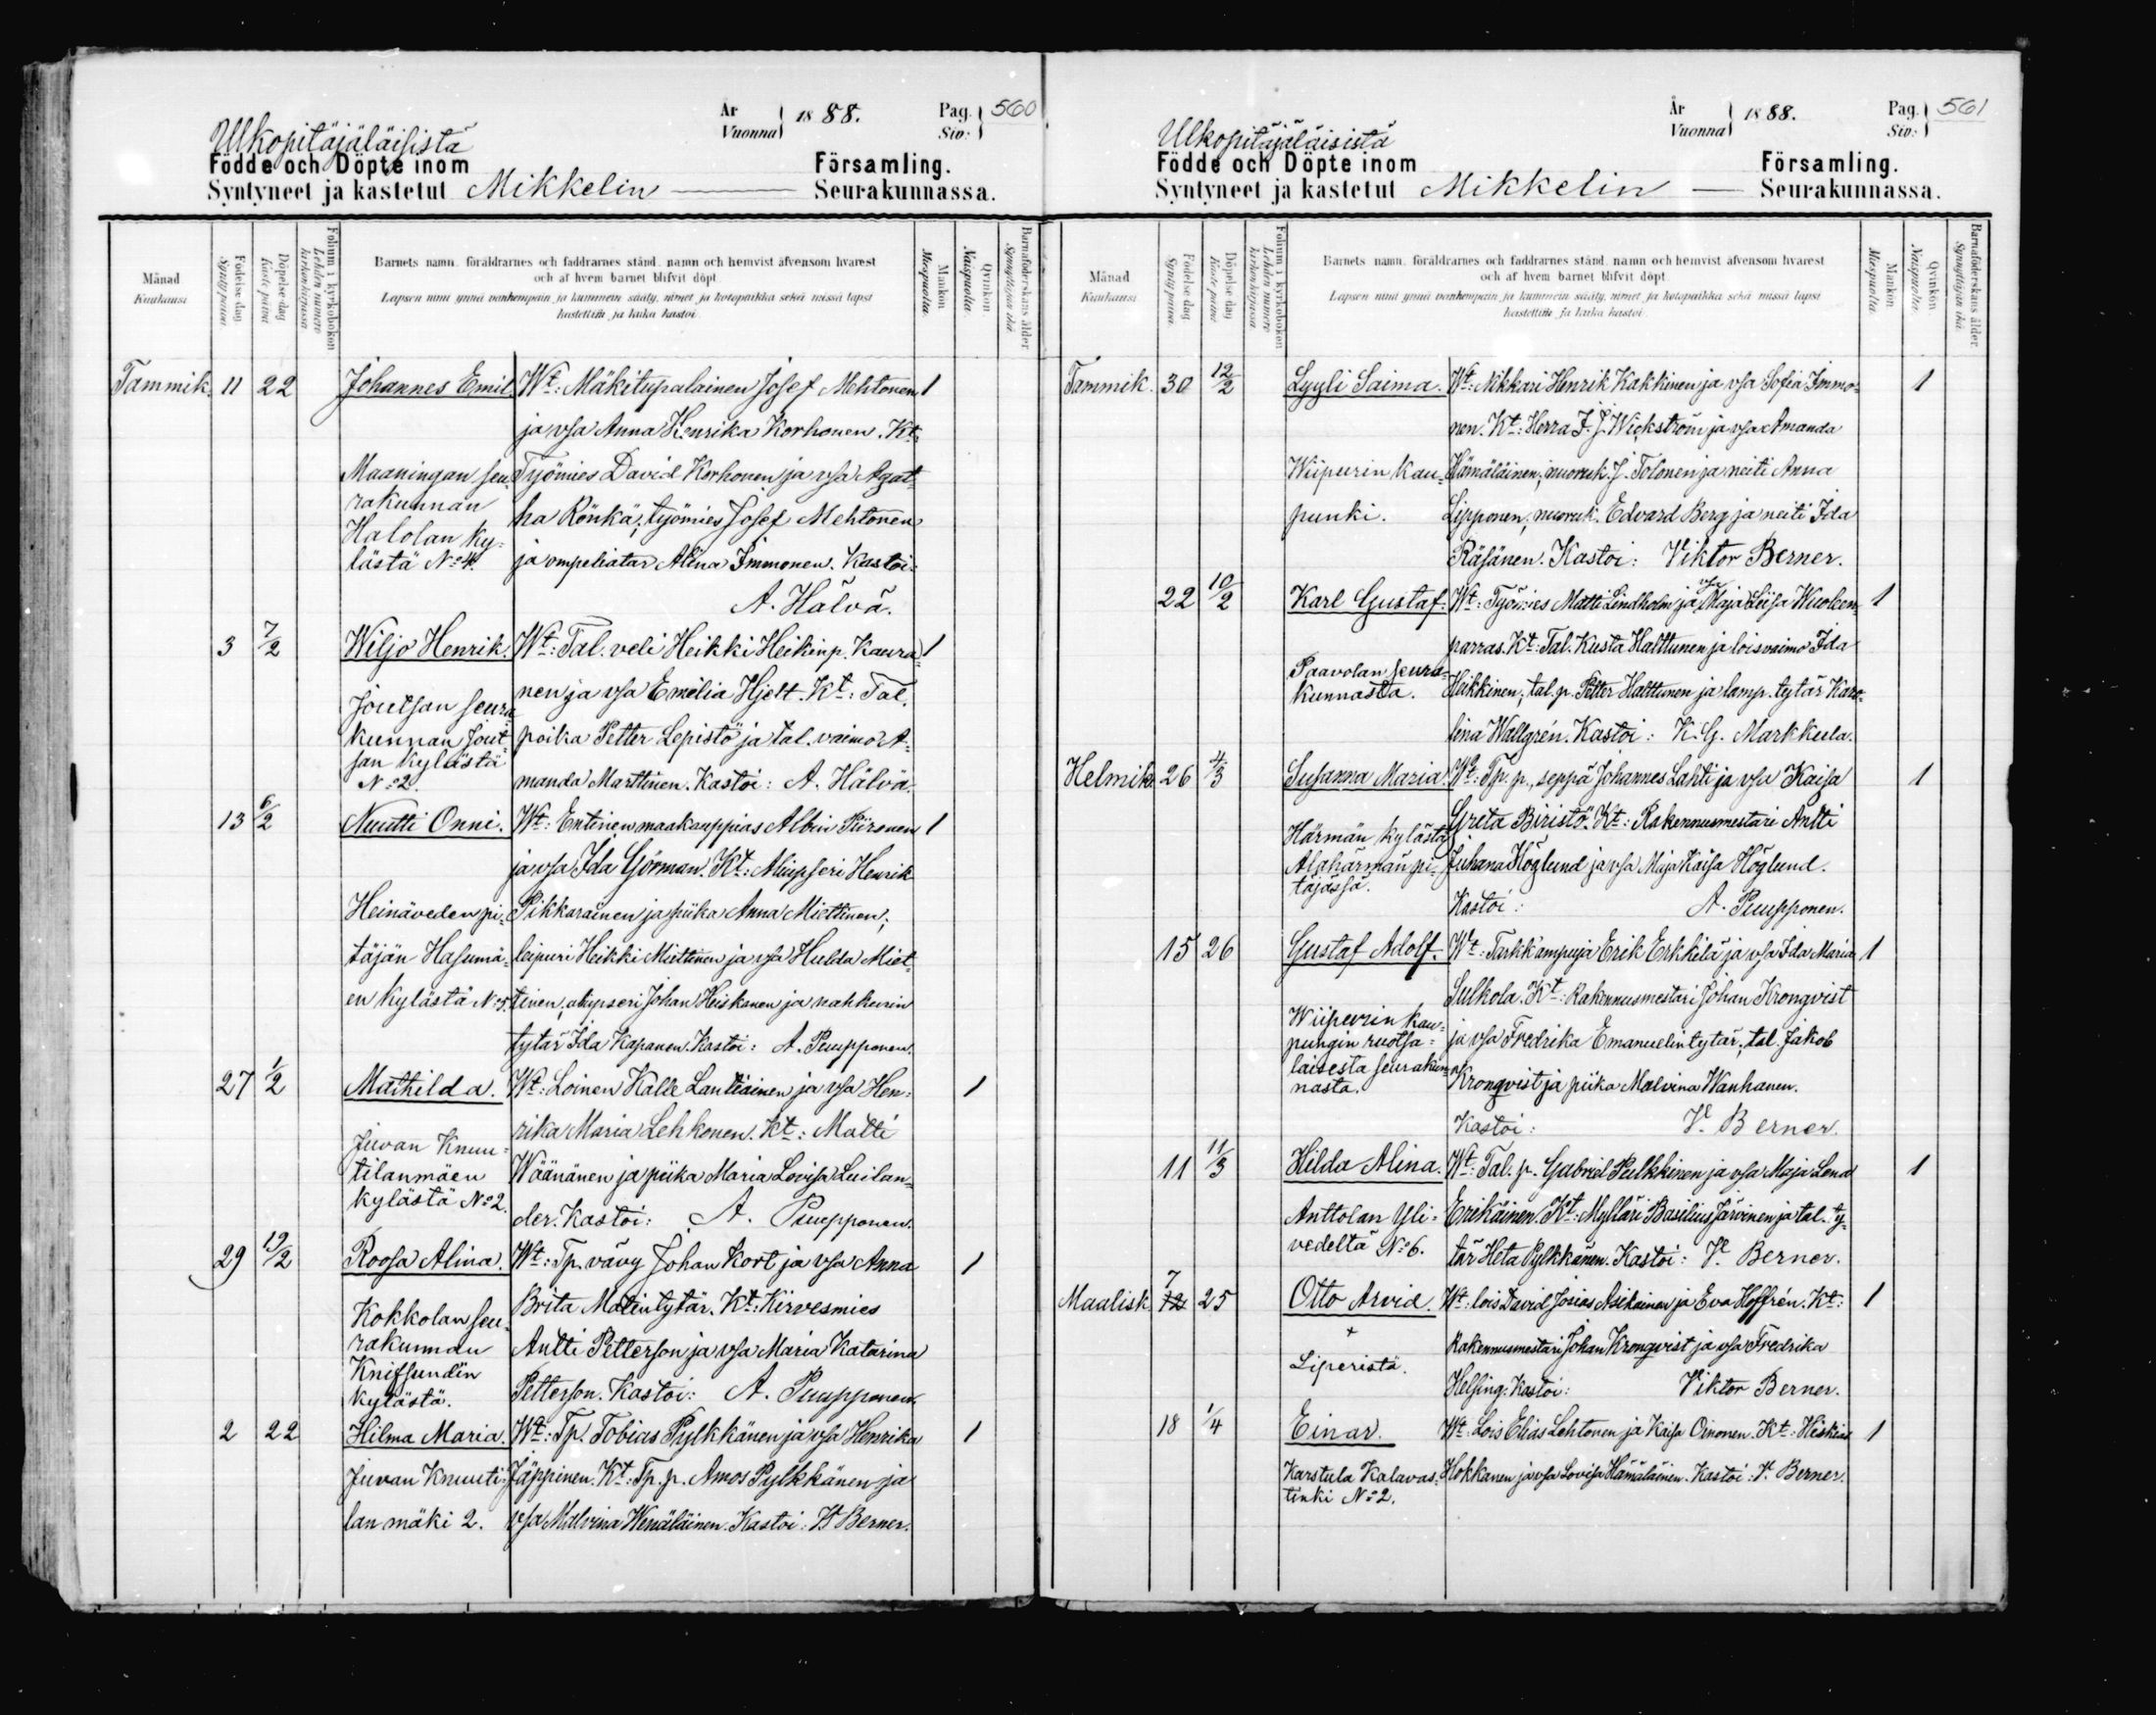 År
Vuonna 1888. Pag. Siv: 560
Ulkopitäjäläisistä
Födde och Döpte inom Församling.
Syntyneet ja kastetut Mikkelin Seurakunnassa.
Månad
Kuukausi
Födelse dag
Synty päivä
Döpelse dag
Kaste päivä
Folium i kyrkobokon
Lehden numero kirkonkirjassa
Barnets namn, föräldrarnes och faddrarnes stånd, namn och hemvist äfvensom hvarest
och af hvem barnet blifvit döpt.
Lapsen nimi ynnä vanhempain ja kummein sääty, nimet ja kotopaikka sekä missä lapsi
kastettiin ja kuka kastoi.
Mankön
Miespuolia.
Qvinkön
Naispuolia
Barnaföderskans ålder.
Synnyttäjän ikä.
Tammik. 11 22 Johannes Emil. Wt: Mäkitupalainen Josef Mehtonen 1
ja vsa Anna Henrika Korhonen. Kt:
Maaningan seu- Työmies David Korhonen ja vsa Agat-
rakunnan
ha Rönkä; työmies Josef Mehtonen
Halolan ky-
lästä No 4. ja ompeliatar Alina Immonen. Kastoi:
A. Hälvä.
3 7/2 Wiljo Henrik. Wt: Tal. veli Heikki Heikinp. Kaura- 1
nen ja vsa Emelia Hjelt. Kt: Tal.
Joutsan seura
kunnan Jout- poika Petter Lepistö ja tal. vaimo A-
san kylästä
No 2. manda Marttinen. Kastoi: A. Hälvä.
13 6/2 Nuutti Onni. Wt: Entinen maakauppias Albin Piironen 1
ja vsa Ida Görman. Kt: Aliupseri Henrik
Heinäveden pi- Pikkarainen ja piika Anna Miettinen;
täjän Hasumä- leipuri Heikki Miettinen ja vsa Hulda Miet-
en kylästä No 5. tinen, aliupseri Johan Heiskanen ja nahkurin
tytär Ida Kapanen. Kastoi: A. Puupponen.
27 1/2 Mathilda. Wt: Loinen Kalle Lautiainen ja vsa Hen- 1
rika Maria Lehkonen. Kt: Matti
Juvan Knuu-
tilanmäen Wäänänen ja piika Maria Lovisa Luilan-
kylästä No 2.
der. Kastoi: A. Puupponen.
29 19/2 Roosa Alina. Wt: Tp. vävy Johan Kort ja vsa Anna 1
Brita Matintytär. Kt: Kirvesmies
Kokkolan seu-
rakunnan Antti Petterson ja vsa Maria Katarina
Knifsundin
kylästä. Petterson. Kastoi: A. Puupponen.
2 22 Hilma Maria. Wt: Tp. Tobias Pylkkänen ja vsa Henrika 1
Juvan Knuuti- Jäppinen. Kt: Tp. p. Amos Pylkkänen ja
lan mäki 2. vsa Malvina Wenäläinen. Kastoi: V. Berner.
År
Vuonna 1888. Pag. Siv: 561
Ulkopitäjäläisistä
Födde och Döpte inom Församling.
Syntyneet ja kastetut Mikkelin Seurakunnassa.
Månad
Kuukausi
Födelse dag
Synty päivä.
Döpelse dag
Kaste päivä
Folium i kyrkobokon
Lehden numero kirkonkirjassa
Barnets namn, föräldrarnes och faddrarnes stånd, namn och hemvist äfvensom hvarest
och af hvem barnet blifvit döpt.
Lapsen nimi ynnä vanhempain ja kummein sääty, nimet ja kotopaikka sekä missä lapsi
kastettiin ja kuka kastoi.
Mankön
Miespuolia.
Qvinkön
Naispuolia.
Barnaföderskans ålder.
Synnyttäjän ikä.
Tammik. 30 12/2 Lyyli Saima. Wt: Nikkari Henrik Kakkinen ja vsa Sofia Immo- 1
nen. Kt: Herra F. J. Wickström ja vsa Amanda
Wiipurin kau- Hämäläinen; nuoruk. J. Tolonen ja neiti Anna
punki. Lipponen; nuoruk. Edvard Berg ja neiti Ida
Räsänen. Kastoi: Viktor Berner.
22 10/2 Karl Gustaf. Wt: Työmies Matti Lindholm ja vsa Maja Leisa Wuoleen- 1
parras. Kt: Tal. Kusta Halttunen ja loisvaimo Ida
Paavolan seura-
kunnasta. Heikkinen; tal. p. Petter Halttunen ja lamp. tytär Karo-
lina Wallgrén. Kastoi: K. G. Markkula.
Helmik. 26 4/3 Susanna Maria. Wt: Tp. p., seppä Johannes Lahti ja vsa Kaisa 1
Greta Biristö. Kt: Rakennusmestari Antti
Härmän kylästä
Alahärmän pi- Juhana Höglund ja vsa Maja Kaisa Höglund.
täjässä.
Kastoi: A. Puupponen.
15 26 Gustaf Adolf. Wt: Tarkk'ampuja Erik Erkkilä ja vsa Ida Maria 1
Sulkola. Kt: Rakennusmestari Johan Kronqvist
Wiipurin kau-
pungin ruotsa- ja vsa Fredrika Emanuelintytär; tal. Jakob
laisesta seurakun-
nasta. Kronqvist ja piika Malvina Wanhanen.
Kastoi: V. Berner.
11 11/3 Hilda Alina. Wt: Tal. p. Gabriel Pulkkinen ja vsa Maja Lena 1
Anttolan Yli- Erikäinen. Kt: Mylläri Basilius Järvinen ja tal. ty-
vedeltä No 6. tär Heta Pylkkänen. Kastoi: V. Berner.
Maalisk. 7 12 25 Otto Arvid. Wt: lois David Josias Asikainen ja Eva Hoffrén. Kt: 1
+
Rakennusmestari Johan Kronqvist ja vsa Fredrika
Liperistä.
Helsing. Kastoi: Viktor Berner.
18 1/4 Einar. Wt: Lois Elias Lehtonen ja Kaisa Oinonen. Kt: Hiskias 1
Karstula Kalavas- Hokkanen ja vsa Lovisa Hämäläinen. Kastoi: V. Berner.
tinki No 2.